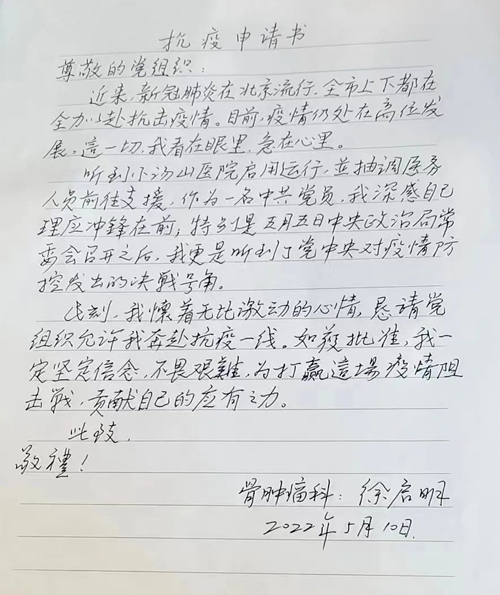 抗疫申请书
尊敬的党组织：
近来，新冠肺炎在北京流行，全市上下都在
全力以赴抗击疫情。目前，疫情仍处在高位发
展，這一切，我看在眼里，急在心里。
听到小汤山医院启用运行，並抽调医务
人员前往支援，作为一名中共党员，我深感自己
理应冲锋在前；特别是五月五日中央政治局常
委会召开之后，我更是听到了党中央对疫情防
控发出的决戰号角。
此刻，我懷着无比激动的心情，恳请党
组织允许我奔赴抗疫一线。如获批准，我一
定坚定信念，不畏艰難，为打赢這場疫情阻
击戰，贡献自己的应有之力。
此致，
敬禮！
骨肿瘤科：徐启明
2022年5月10日.